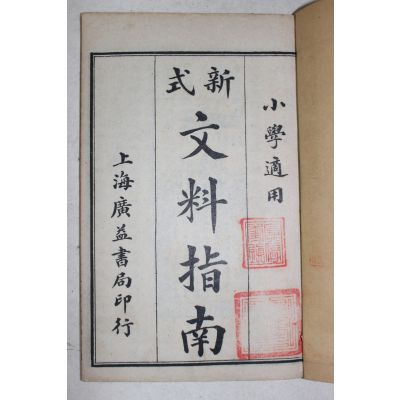 小學適用
新式
文料指南
上海廣益書局印行